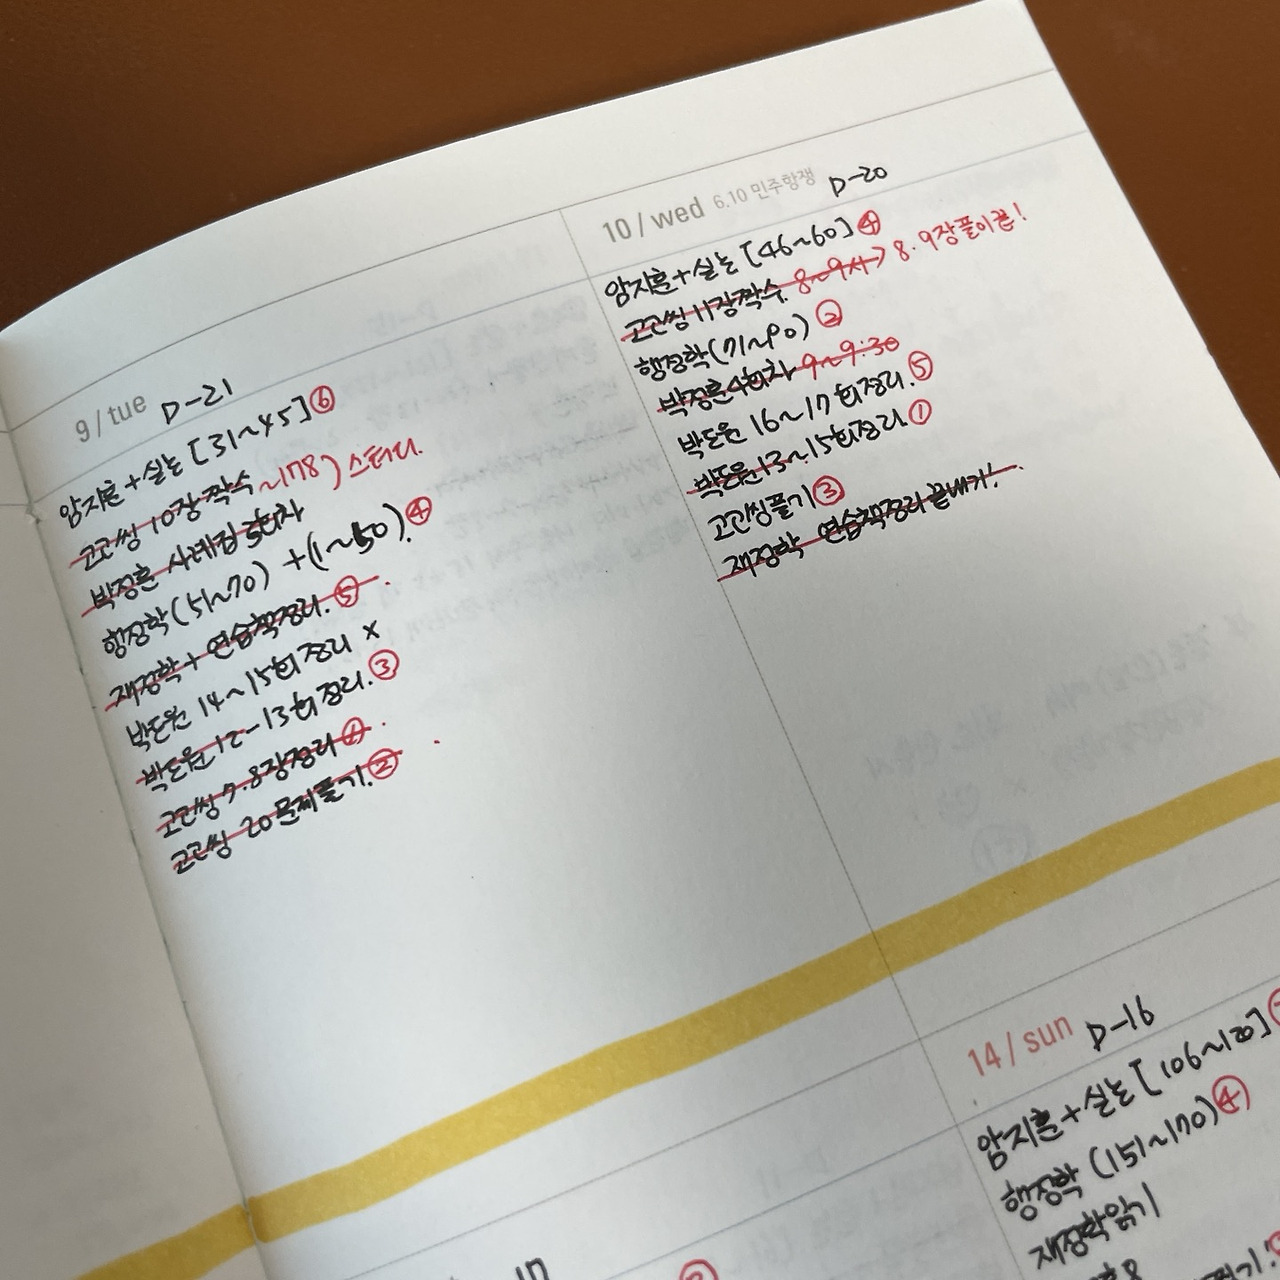 9/tue D-21
암지훈+실논 [31~45] ⑥
고곤씽 10장 짝수 ~178) 스터디.
박정훈 사례집 3회차
행정학(51~70) +(1~50). ④
재정학+연습책정리. ⑤
박도원 14~15회 정리 x
박도원 12-13회 정리. ③
고곤씽 7.8장정리 ①.
고곤씽 20문제풀기. ②
10/wed 6.10 민주항쟁 D-20
암지훈+실논 [46~60] ④
고곤씽 11장짝수. 8~9시) 8.9장풀이끝!
행정학(71~90) ②
박정훈4회차 9~9:30
박도원 16~17회정리. ⑤
박도원13~15회정리. ①
고곤씽풀기 ③
재정학 연습책정리 끝내기!
14/sun D-16
암지훈+실논 [106~120]
행정학 (151~170) ④
재정학읽기